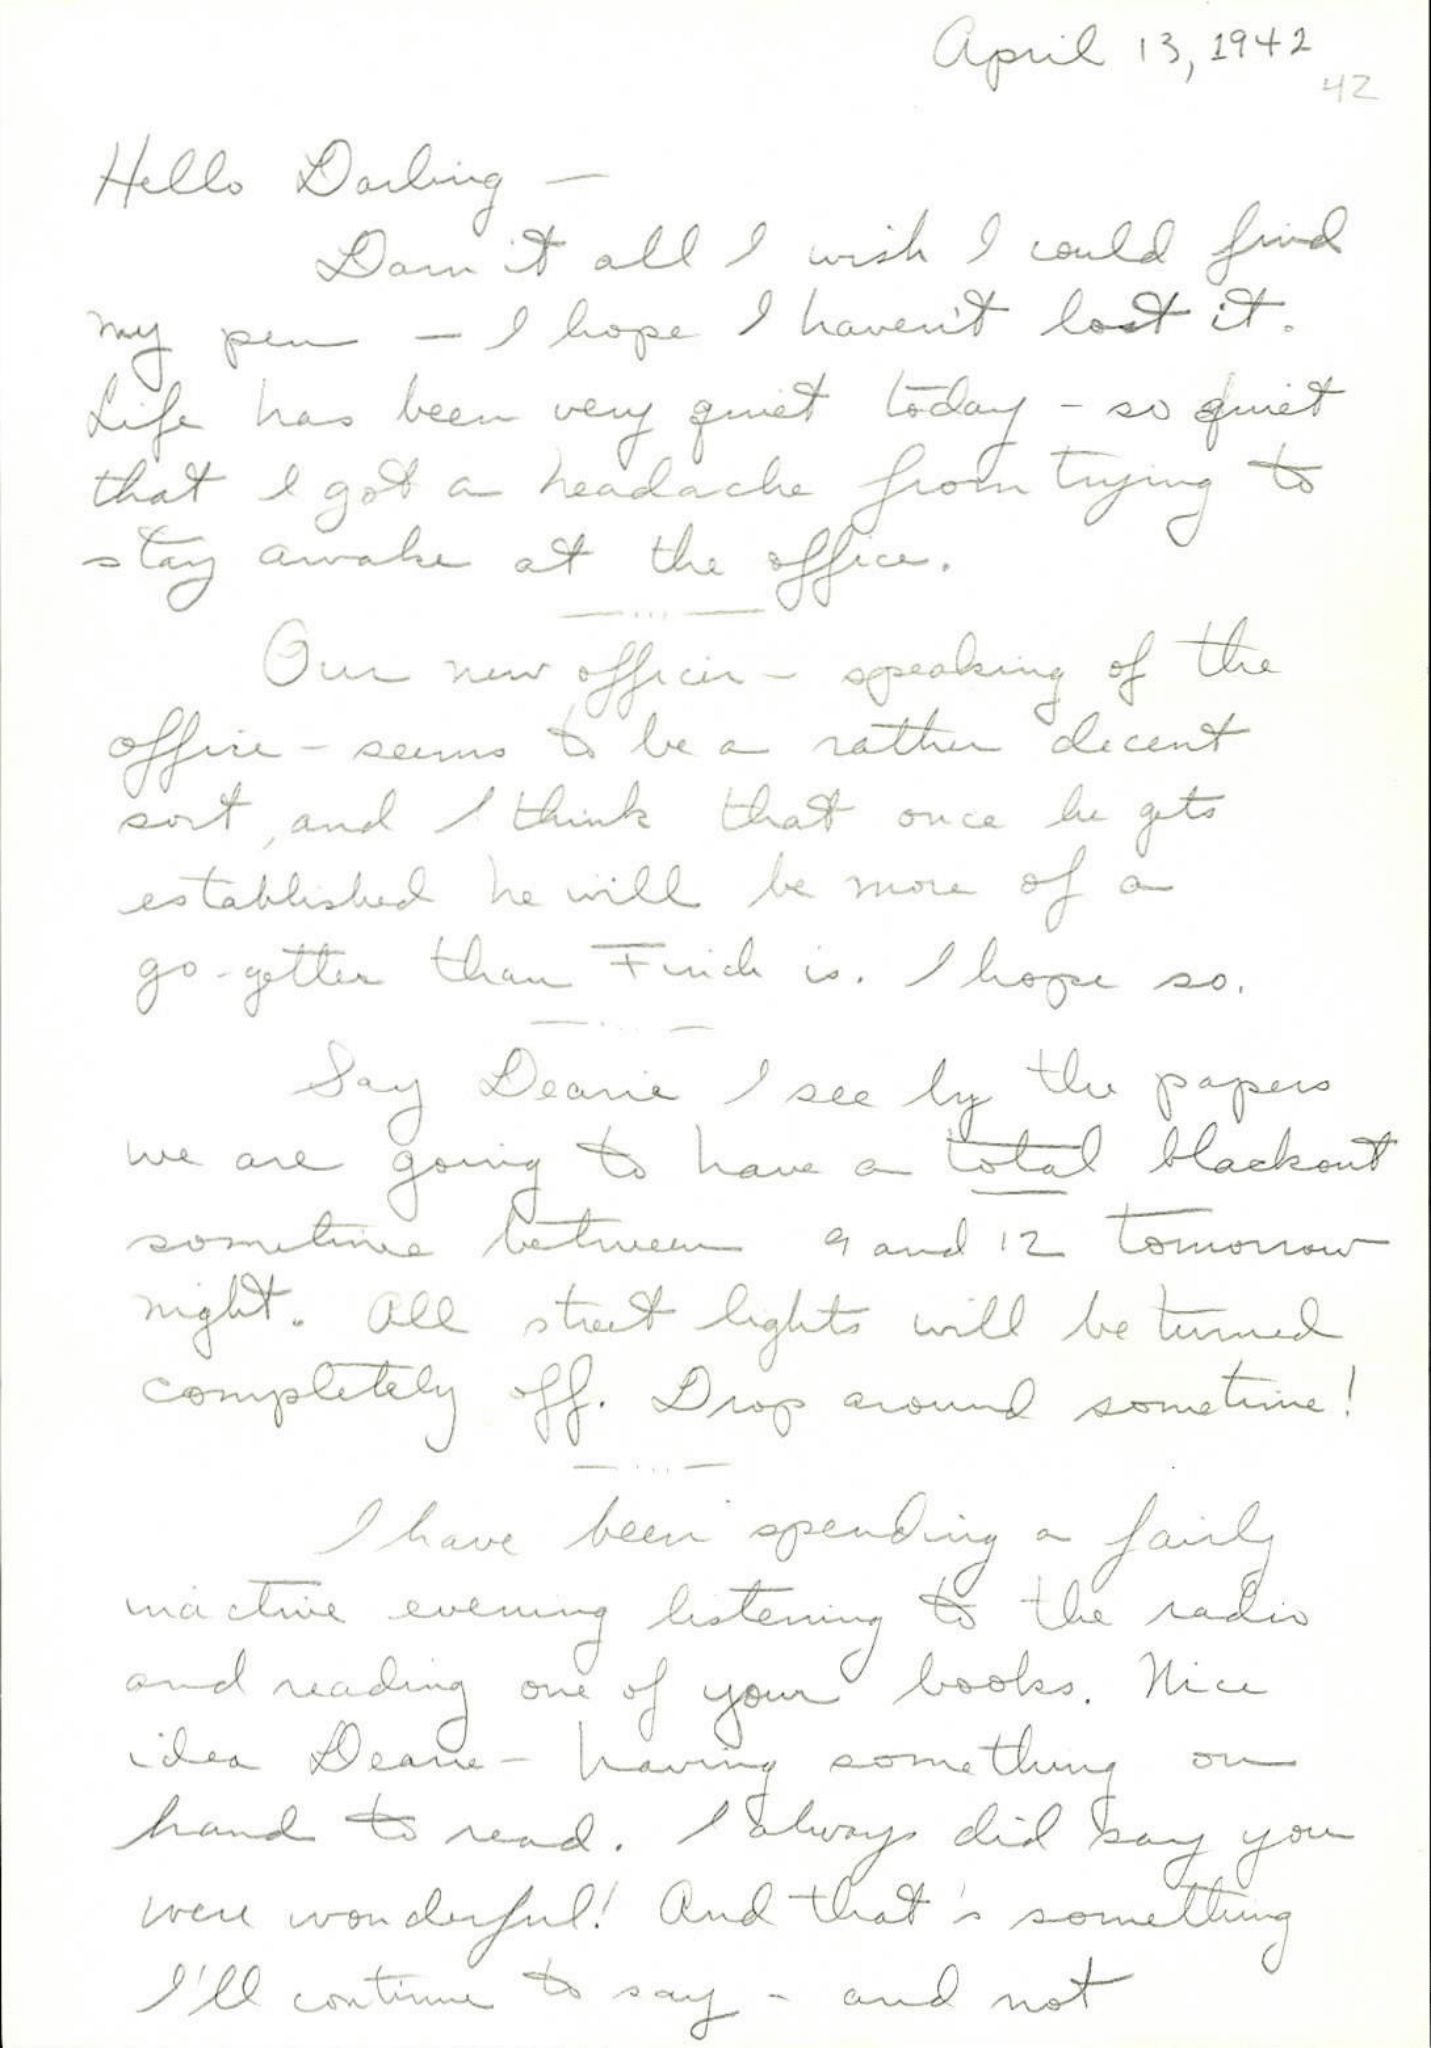 April 13, 1942
42
Hello Darling —
Darn it all I wish I could find
my pen — I hope I haven't lost it.
Life has been very quiet today - so quiet
that I got a headache from trying to
stay awake at the office.
— ... —
Our new officer - speaking of the
office - seems to be a rather decent
sort, and I think that once he gets
established he will be more of a
go-getter than Finch is. I hope so.
— ... —
Say Dearie I see by the papers
we are going to have a total blackout
sometime between 9 and 12 tomorrow
night. All street lights will be turned
completely off. Drop around sometime!
— ... —
I have been spending a fairly
inactive evening listening to the radio
and reading one of your books. Nice
idea Dearie - having something on
hand to read. I always did say you
were wonderful! And that's something
I'll continue to say - and not